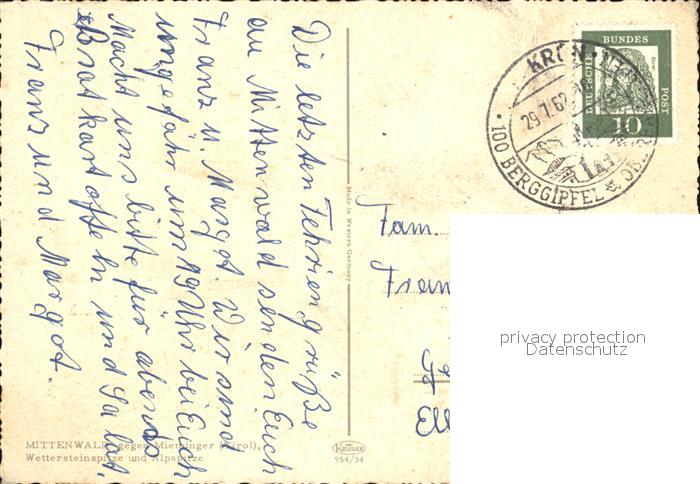 Die letzten Feriengrüße
au Mittenwald senden Euch
Franz u. Margot. Wir sind
ungefähr um 19 Uhr bei Euch
Macht uns bitte für abends
Bratkartoffeln und Salat.
Franz und Margot.
MITTENWALD gegen Mieminger (Tirol),
Wettersteinspitze und Alpspitze
Made in Western Germany
KRÜGER
954/34
DEUTSCHE
BUNDES
POST
10
29.7.62
100 BERGGIPFEL
Fam.
privacy protection
Datenschutz